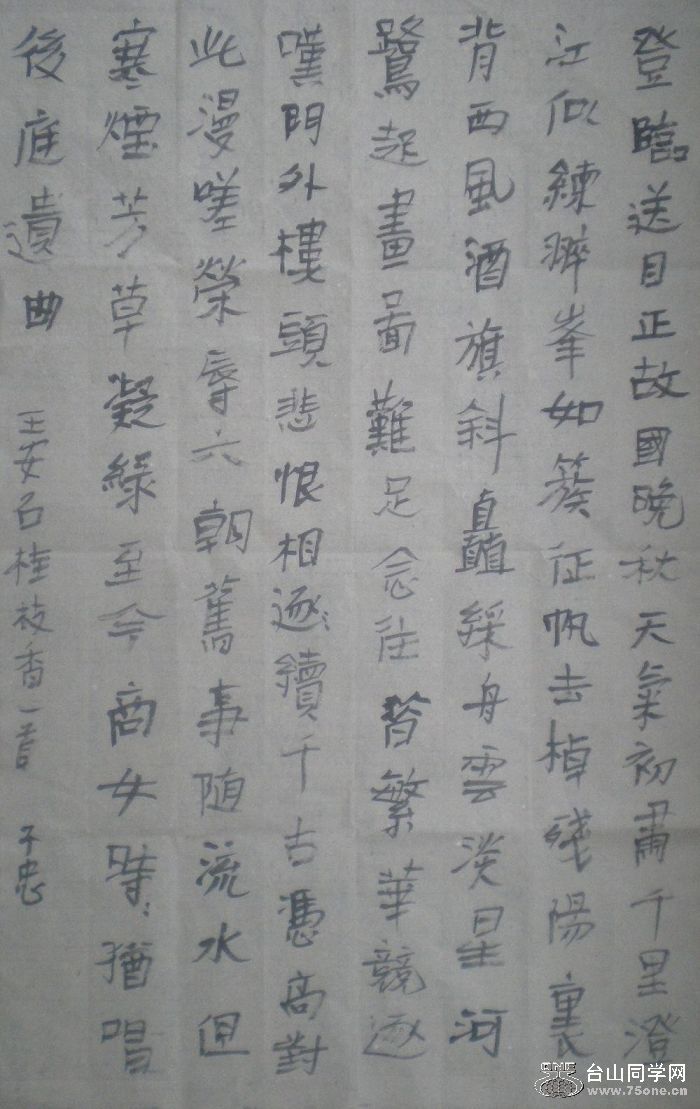 登臨送目正故國晚秋天氣初肅千里澄
江似練翠峯如簇征帆去棹殘陽裏
背西風酒旗斜矗綵舟雲淡星河
鷺起畫圖難足念往昔繁華競逐
嘆門外樓頭悲恨相逐續千古憑高對
此漫嗟榮辱六朝舊事随流水但
寒煙芳草凝綠至今商女時時猶唱
後庭遺曲
王安石桂枝香一首 子忠
台山同学网
www.75one.cn